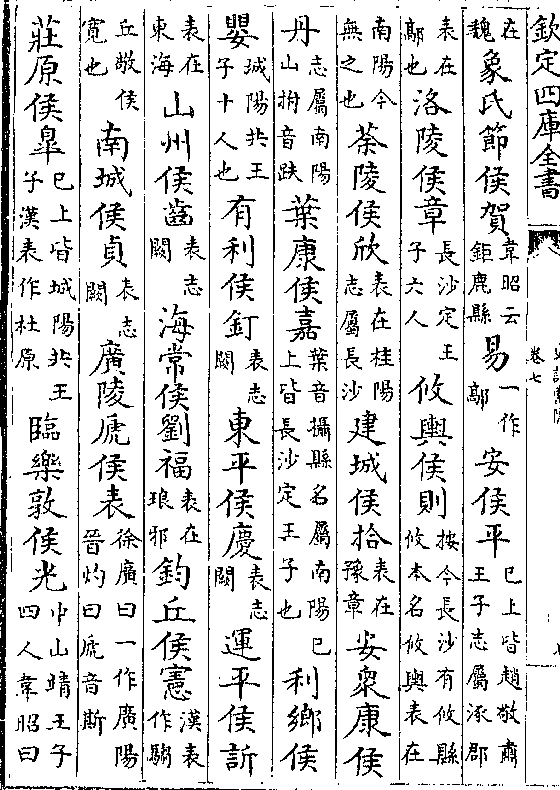 欽定四庫全書
卷七
在魏象氏節侯賀韋昭云鉅鹿縣易一作鄗安侯平已上皆趙敬肅王子志屬涿郡
表在鄗也洛陵侯章長沙定王子六人攸輿侯則按今長沙有攸縣攸本名攸輿表在
南陽今無之也荼陵侯欣表在桂陽志屬長沙建城侯拾表在豫章安衆康侯
丹志屬南陽山拊音趺葉康侯嘉葉音攝縣名屬南陽已上皆長沙定王子也利鄉侯
嬰城陽共王子十人也有利侯釘表志闕東平侯慶表志闕運平侯訢
表在東海山州侯齒表志闕海常侯劉福表在琅邪鈞丘侯憲漢表作騶
丘敬侯寛也南城侯貞表志闕廣陵虒侯表徐廣曰一作廣陽晉灼曰虒音斯
莊原侯臯已上皆城陽共王子漢表作杜原臨樂敦侯光中山靖王子四人韋昭曰